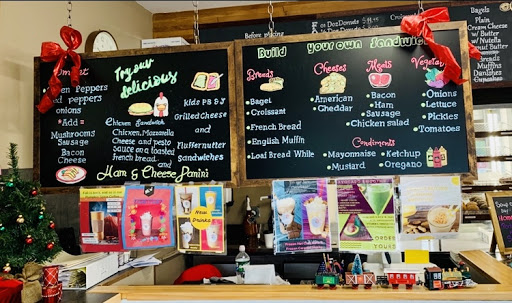 Before Making
Doz Donuts
Omelet
Green Peppers
and peppers
onions
"Add =
Mushrooms
Sausage
Bacon
Cheese
Try our
delicious
Chicken Sandwich
Chicken, Mozzarella
Cheese and pesto
Sauce on a toasted
French bread
kids PB & J
Grilled Cheese
and
Fluffernutter
Sandwiches
Ham & Cheese Panini
Build your own Sandwich
Breads
Bagel
Croissant
French Bread
English Muffin
Loaf Bread White
Cheeses
American
Cheddar
Meats
Bacon
Ham
Sausage
Chicken salad
Vegetables
Onions
Lettuce
Pickles
Tomatoes
Condiments
Mayonnaise
Ketchup
Mustard
Oregano
Bagels
Plain
Cream Cheese
w/ Butter
w/ Nutella
Peanut Butter
Breads
Muffins
Danishes
Cupcakes
New
Drinks